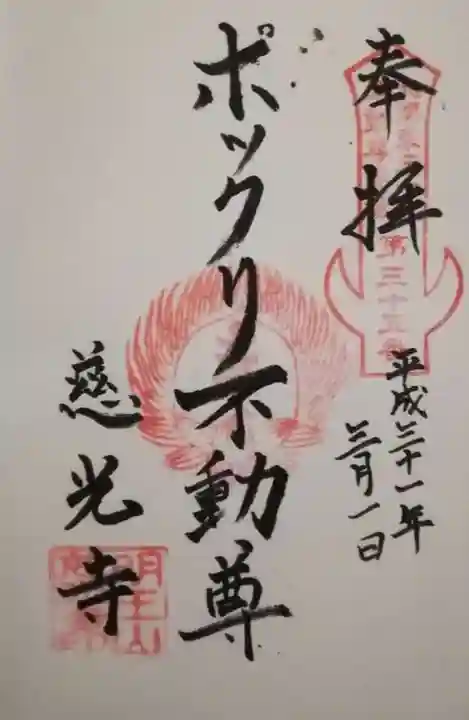 奉拝
第三十三番
平成三十一年
三月一日
ポックリ不動尊
慈光寺
明王山